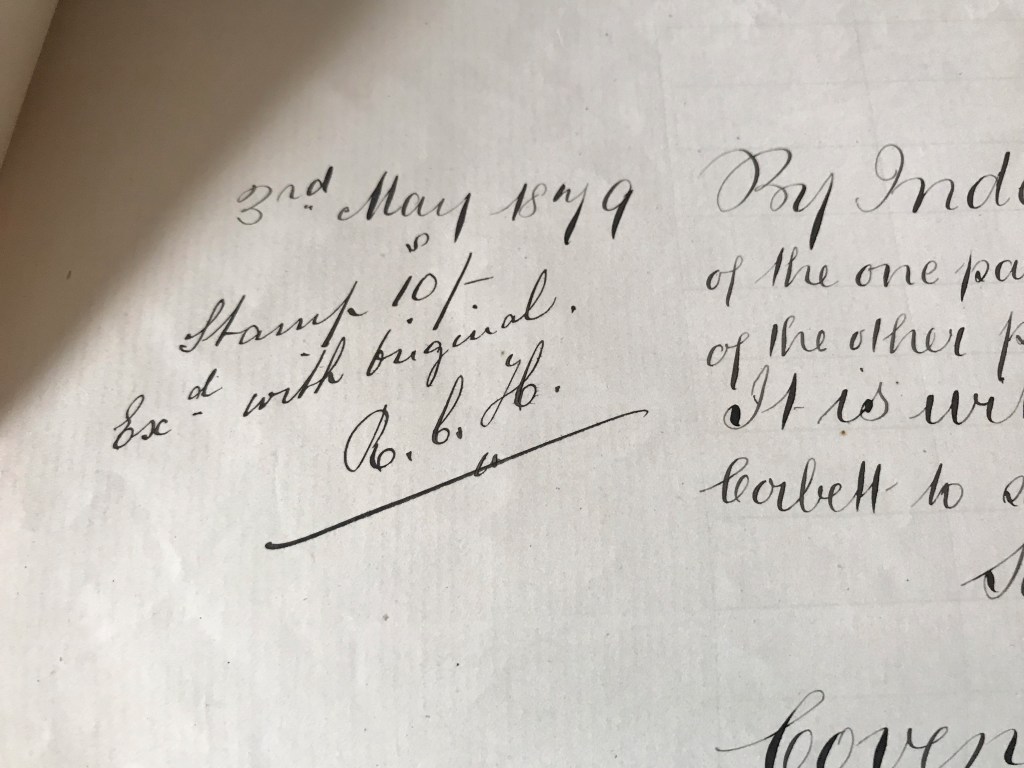 3rd May 1879
Stamp 10/-
Exd with original.
R. C. H.
By Inde
of the one pa
of the other p
It is wi
Corbett to s
Coven